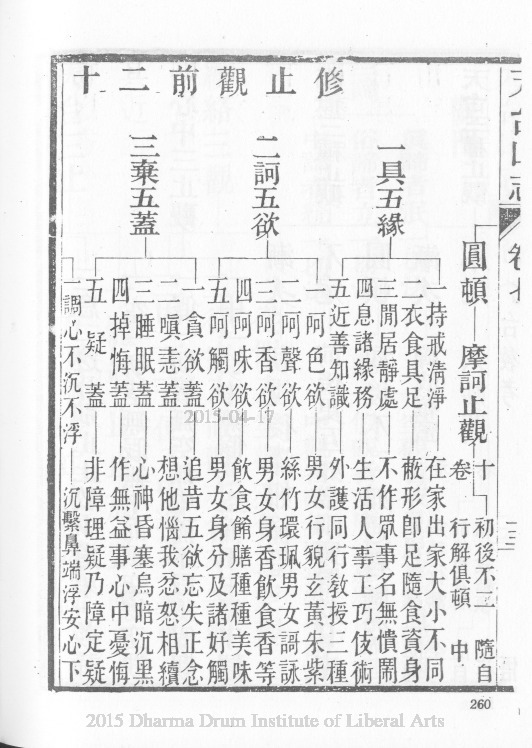 天台山志 卷七
圓頓——摩訶止觀十卷 初後不二 行解俱頓 隨自 中
修止觀前二十
一具五緣
一持戒清淨——在家出家大小不同
二衣食具足——蔽形卽足隨食資身
三閒居靜處——不作眾事名無憒鬧
四息諸緣務——生活人事工巧伎術
五近善知識——外護同行敎授三種
二訶五欲
一呵色欲——男女行貌玄黃朱紫
二呵聲欲——絲竹環珮男女謌詠
三呵香欲——男女身香飲食香等
四呵味欲——飲食餚膳種種美味
五呵觸欲——男女身分及諸好觸
三棄五蓋
一貪欲蓋——追昔五欲忘失正念
二嗔恚蓋——想他惱我忿怒相續
三睡眠蓋——心神昏塞烏暗沉黑
四掉悔蓋——作無益事心中憂悔
五疑蓋——非障理疑乃障定疑
一調心不沉不浮——沉繫鼻端浮安心下
一三
260
2015-04-17
2015 Dharma Drum Institute of Liberal Arts